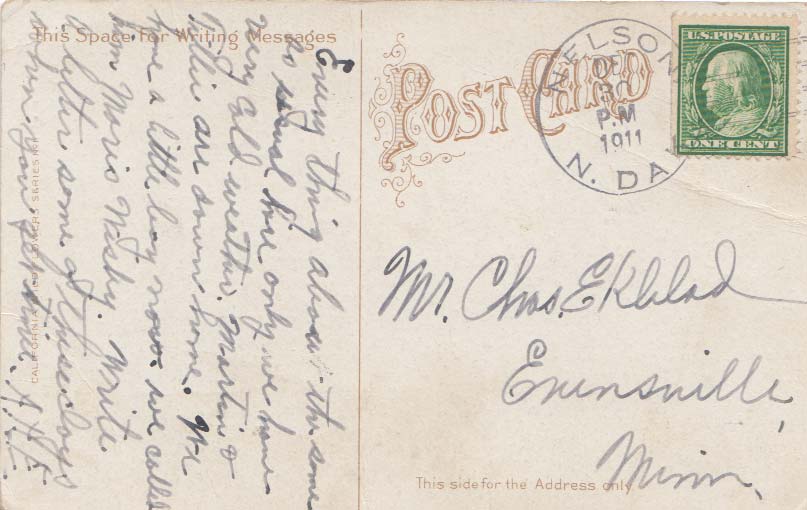 This Space for Writing Messages
Every thing about the same
as usual here only we have
very cold weather. Martin &
are down home. We
have a little boy now. we called
him Moris Wesby. Write
a letter some of these days
when you get time. A. A. E.
CALIFORNIA WILDFLOWERS SERIES
POST CARD
NELSON
DE
30
P.M
1911
N. DAK
U.S. POSTAGE
ONE CENT
Mr. Chas. Ekblad
Evensville,
Minn.
This side for the Address only